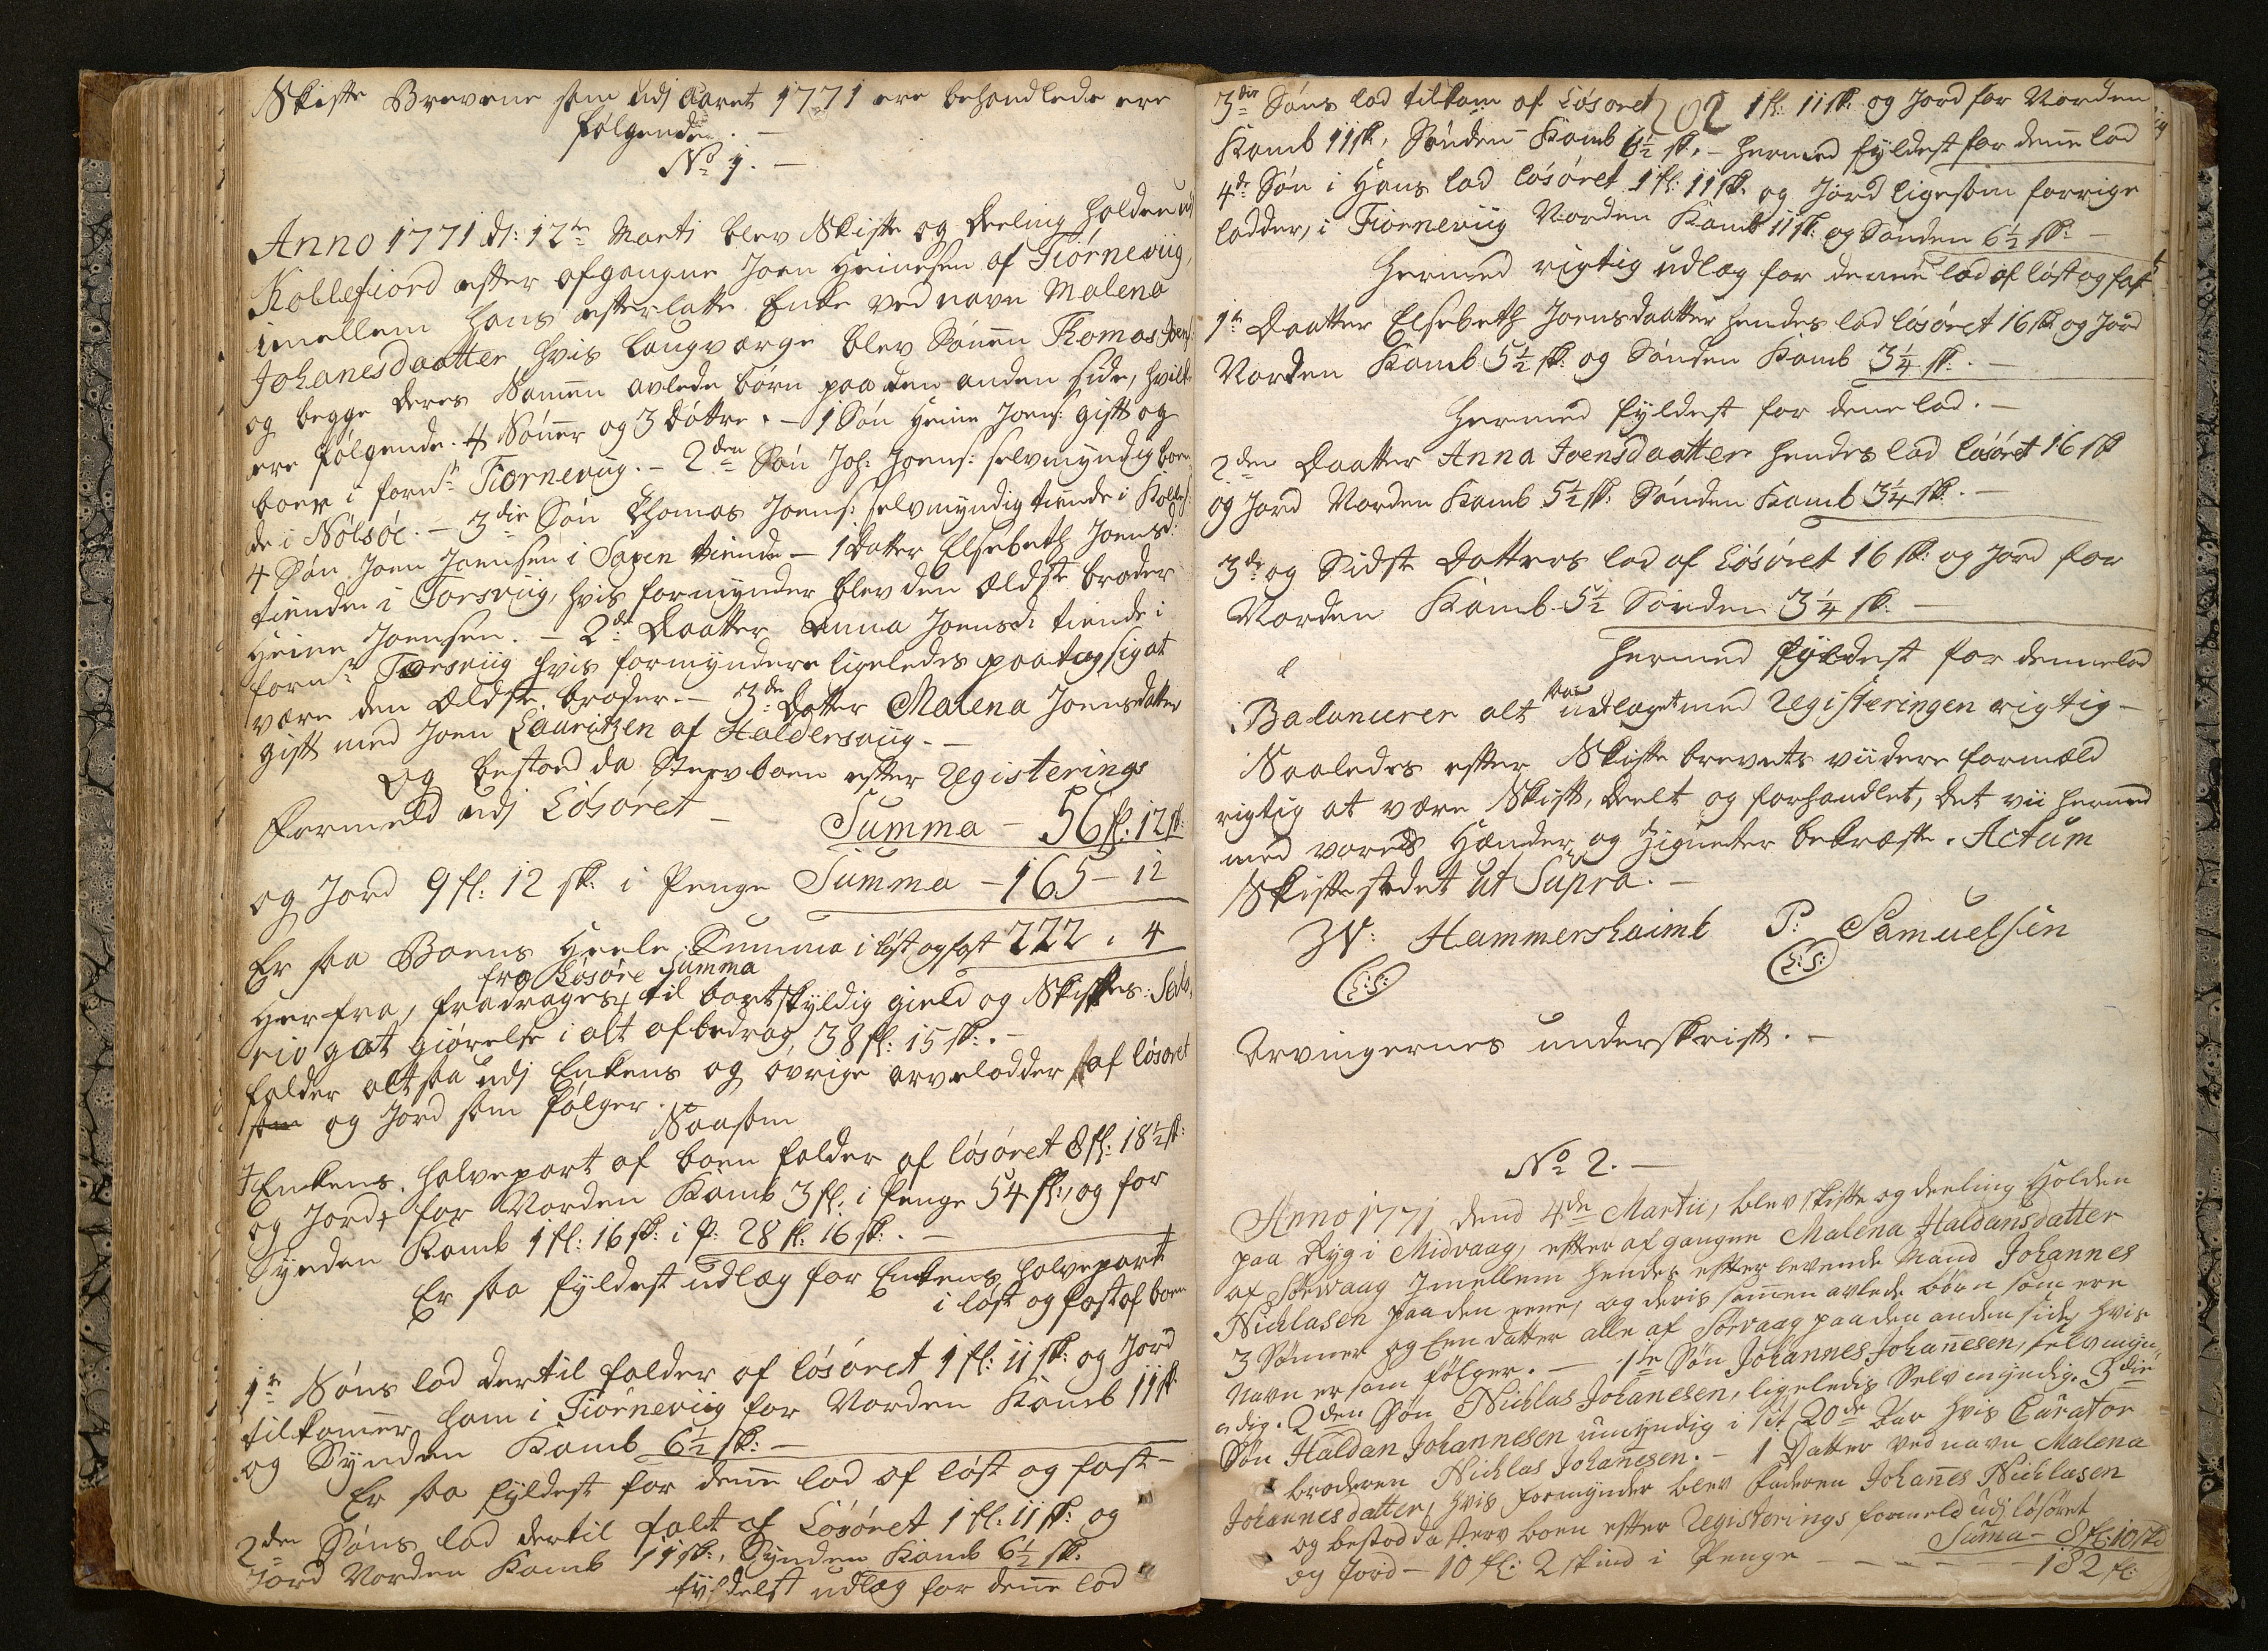 Skifte Brevene som udj Aaret 1771 ere behandlede ere
følgende. -
No 1. -
Anno 1771 d: 12te Martj blev Skifte og deeling holden udj
Kollefiord efter afgangne Joen Heinesen af Tiørneviig,
imellem hans efterlatte Enke ved navn Malena
Johanesdaatter hvis laugværge blev Sønen Thomas Joens:
og begge deres Samen avlede børn paa den anden side, hvilke
ere følgende. 4 Søner og 3 døttre. - 1 Søn Heine Joens: gift og
boer i fornte Tiørneviig. - 2den Søn Joh: Joens: selvmyndig boen-
de i Nølsøe. - 3die Søn Thomas Joens: selvmyndig tiende i Kollef:
4 Søn Joen Joensen i Saxen tiende - 1 Datter Elsebeth Joensd:
tienden i Torsviig, hvis formynder blev den ældste broder
Heine Joensen. - 2de: Daatter Anna Joensd: tiende i
fornte Torsviig hvis formyndere ligeledes paatog sig at
være den ældste broder. - 3de Datter Malena Joensdatter
gift med Joen Lauritzen af Haldersviig. -
Og bestoed da Sterv boen efter Registerings
Formeld udj Løsøret - Summa - 56 fl: 12 sk:
og Jord 9 fl: 12 sk: i Penge Summa - 165 - 12
Er saa Boens Heele Summa i løst og fast 222 . 4
fra Løsøre Summa
Herfra, fradrages til bortskyldig gield og Skiftes: Sala-
rio got giørelse i alt afbedrag 38 fl: 15 sk: . -
falder altsaa udj Enkens og øvrige arvelodder af løsøret
som og Jord som følger.
Saasom
Enkens halvepart af boen falder af løsøret 8 fl: 18½ sk:
og Jord for Norden Kamb 3 fl: i Penge 54 fl:, og for
Synden Kamb 1 fl: 16 sk: i P: 28 fl: 16 sk: . -
Er saa fyldest udlæg for Enkens halvepart
i løst og fast af boen
1te Søns lod dertil falder af løsøret 1 fl: 11 sk: og Jord
tilkomer ham i Tiørneviig for Norden Kamb 11 sk
og Synden Kamb 6½ sk: -
Er saa fyldest for dene lod af løst og fast -
2den Søns lod dertil falt af Løsøret 1 fl: 11 sk: og
Jord Norden Kamb 11 sk:, Synden Kamb 6½ sk:
fyldest udlæg for dene lod
3die Søns lod tilkom af Løsøret 1 fl: 11 sk: og Jord for Norden
202
Kamb 11 sk, Sønden Kamb 6½ sk. - hermed fyldest for dene lod
4de Søn i Hans lod løsøret 1 fl: 11 sk: og Jord ligesom forrige
lodder, i Tiørneviig Norden Kamb 11 sk: og Sønden 6½ sk: -
Hermed rigtig udlæg for denne lod af løst og fast
1te Daatter Elsebeth Joensdaatter hendes lod løsøret 16 sk og Jord
Norden Kamb 5½ sk: og Sønden Kamb 3¼ sk: . -
Hermed fyldest for dene lod. -
2den Daatter Anna Joensdaatter hendes lod løsøret 16 sk
og Jord Norden Kamb 5½ sk: Sønden Kamb 3¼ sk: . -
3de og Sidste Datters lod af Løsøret 16 sk: og Jord for
Norden Kamb 5½ Sønden 3¼ sk: -
Hermed fyldest for denne lod
Balancerer alt saa udlæget med Registeringen rigtig -
Saaledes efter Skifte brevets viidere formæld
rigtig at være Skift, deelt og forhandlet, det vii hermed
med vores Hænder og Zigneter bekræfte. Actum
Skifte stedet ut Supra. -
JV: Hammershaimb P: Samuelsen
(L:S:) (L:S:)
Arvingernes underskrift. -
No 2. -
Anno 1771 dend 4de Martii, blev skifte og deeling Holden
paa Ryg i Midvaag, efter afgangne Malena Haldansdatter
af Sørvaag Imellem hendes efterlevende Mand Johannes
Nichlasen paa den eene, og deris samen avlede børn som ere
3 Sønner og Een datter alle af Sørvaag paa den anden side, hvis
Navn er som følger. - 1te Søn Johannes Johanesen, selvmyn-
dig. 2den Søn Nichlas Johanesen, ligeledis Selvmyndig. 3die
Søn Haldan Johannesen umyndig i sit 20de Aar hvis Curator
broderen Nichlas Johanesen. - 1 Datter ved navn Malena
Johannesdatter, hvis formynder blev Faderen Johanes Nichlasen
og bestod da sterv boen efter Registerings formeld udj løsøret
Suma - 8 fl: 10 sk
og Jord - 10 fl: 2 skind i Penge - - - 182 fl: